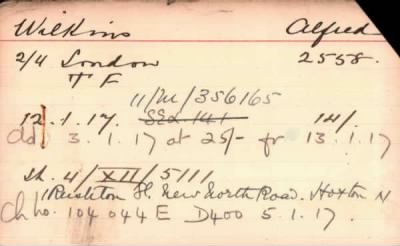 Wilkins Alfred
2/4 London 2558.
T F
11/M/356165
12.1.17. SE2.141 14/-
dd 3.1.17 at 25/- fr 13.1.17
Sh. 4/XII/5111
11 Rushton St. New North Road. Hoxton N
Ch no. 104044E D400 5.1.17.